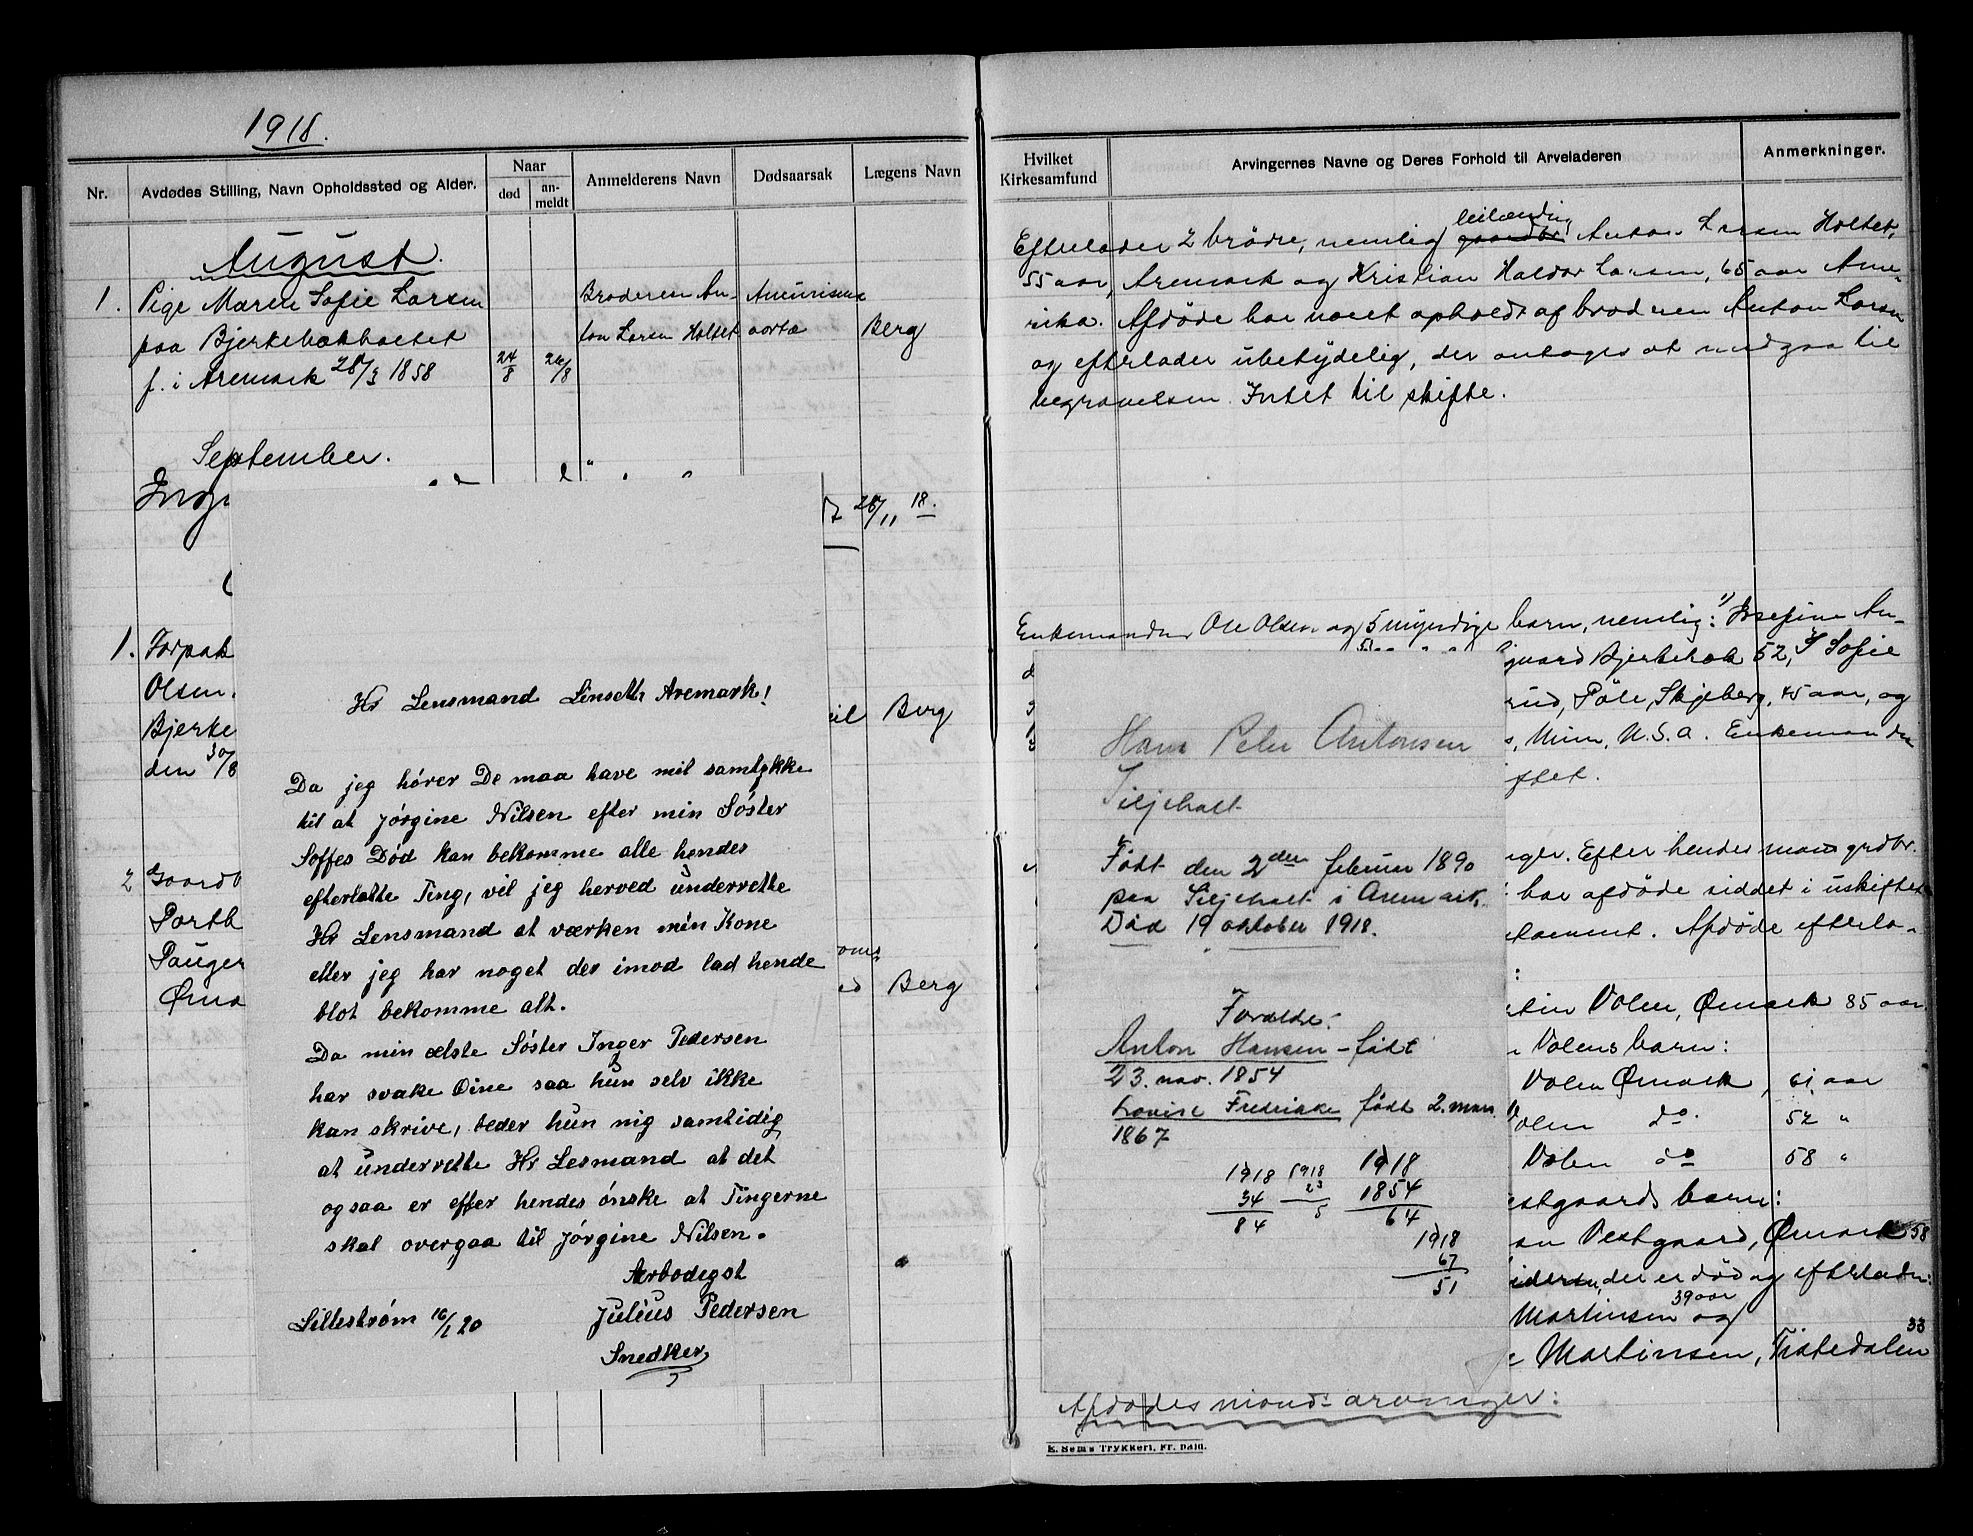 1918.
Nr.
Avdødes Stilling, Navn Opholdssted og Alder.
Naar
død
an-
meldt
Anmelderens Navn
Dødsaarsak
Lægens Navn
August.
1. Pige Maren Sofie Larsen
paa Bjerkebækholtet
f. i Aremark 28/3 1858
24/8
26/8
Broderen An-
ton Larsen Holtet
Aneurisme
aortæ
Berg
September.
Inge
28/11 18.
1. Forpak
Olsen.
Bjerke
den 30/8
Berg
2 Gaardb
Porth
Pauger
Ømа
Berg
Hr Lensmand Linseth Aremark!
Da jeg hører De maa have mit samtykke
til at Jørgine Nilsen efter min Søster
Soffes Død kan bekomme alle hendes
efterlatte Ting, vil jeg herved underrette
Hr Lensmand at værken min Kone
eller jeg har noget der imod lad hende
blot bekomme alt.
Da min ælste Søster Inger Pedersen
har svake Øine saa hun selv ikke
kan skrive, beder hun mig samtidig
at underrette Hr Lesmand at det
ogsaa er efter hendes ønske at Tingerne
skal overgaa til Jørgine Nilsen.
Ærbødigst
Lillestrøm 16/1 20
Julius Pedersen
Snedker
Hvilket
Kirkesamfund
Arvingernes Navne og Deres Forhold til Arveladeren
Anmerkninger.
leilænding
Efterlader 2 brødre, nemlig gaardbr Anton Larsen Holtet,
55 aar, Aremark og Kristian Haldor Larsen, 65 aar Ame-
rika. Afdøde har været opholdt af broderen Anton Larsen
og efterlader ubetydelig, der antages at medgaa til
begravelsen. Intet til skifte.
Enkemanden Ole Olsen og 5 myndige barn, nemlig: 1) Josefine An-
gaard Bjerkebæk 52, Sofie
rud, Pøle, Skjeberg, 45 aar, og
Minn, U.S.A. Enkemanden
iftet.
nger. Efter hendes man grdbr.
har afdøde siddet i uskiftet
tament. Afdøde efterla-
:
tin Volen, Ømark 85 aar.
n Volens barn:
Volen Ømark, 61 aar
Volen do. 52 "
Volen do 58 "
estgaards barn:
an Vestgaard, Ømark 58
idersen, der er død og efterlader:
39 aar
Martinsen og
33
e Martinsen, Tistedalen
Afdødes mands arvinger:
E. Sems Trykkeri, Fr. hald.
Hans Peter Antonsen
Siljeholt
Født den 2den februar 1890
paa Siljeholt i Aremark.
Død 19 oktober 1918.
Forældre:
Anton Hansen – født
23. nov. 1854
Lovise Fredrikke født 2. mars
1867
1918 1918 1918
34 23 1854
84 5 64
1918
67
51